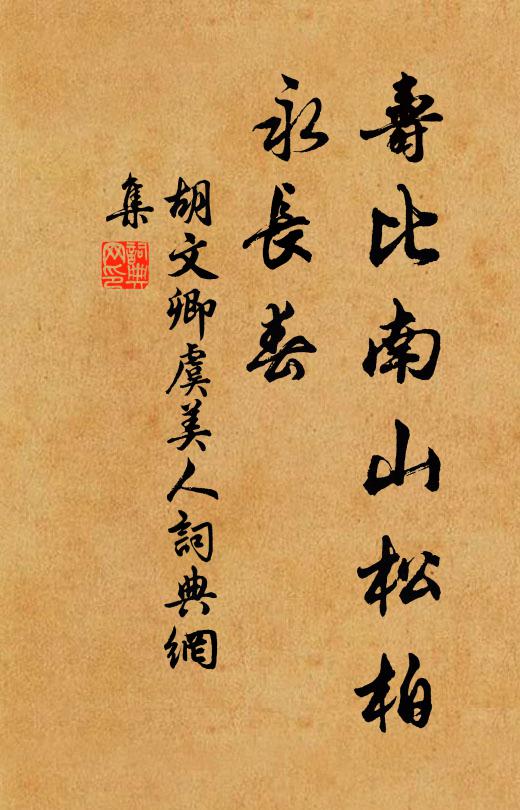 壽比南山松柏
永長春
胡文卿虞美人詞典網
集
詞典
网印